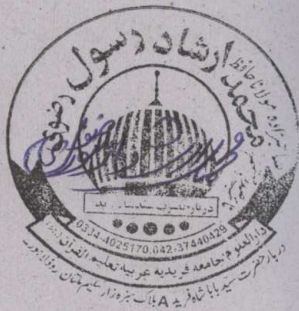 صاحبزادہ مولانا حافظ
محمد ارشاد رسول رضوی
0334-4025170,042-37440429
دارالعلوم جامعہ فریدیہ عربیہ تعلیم القرآن
دربار حضرت سید بابا شاہ فرید A بلاک سبزہ زار سکیم ملتان روڈ لاہور